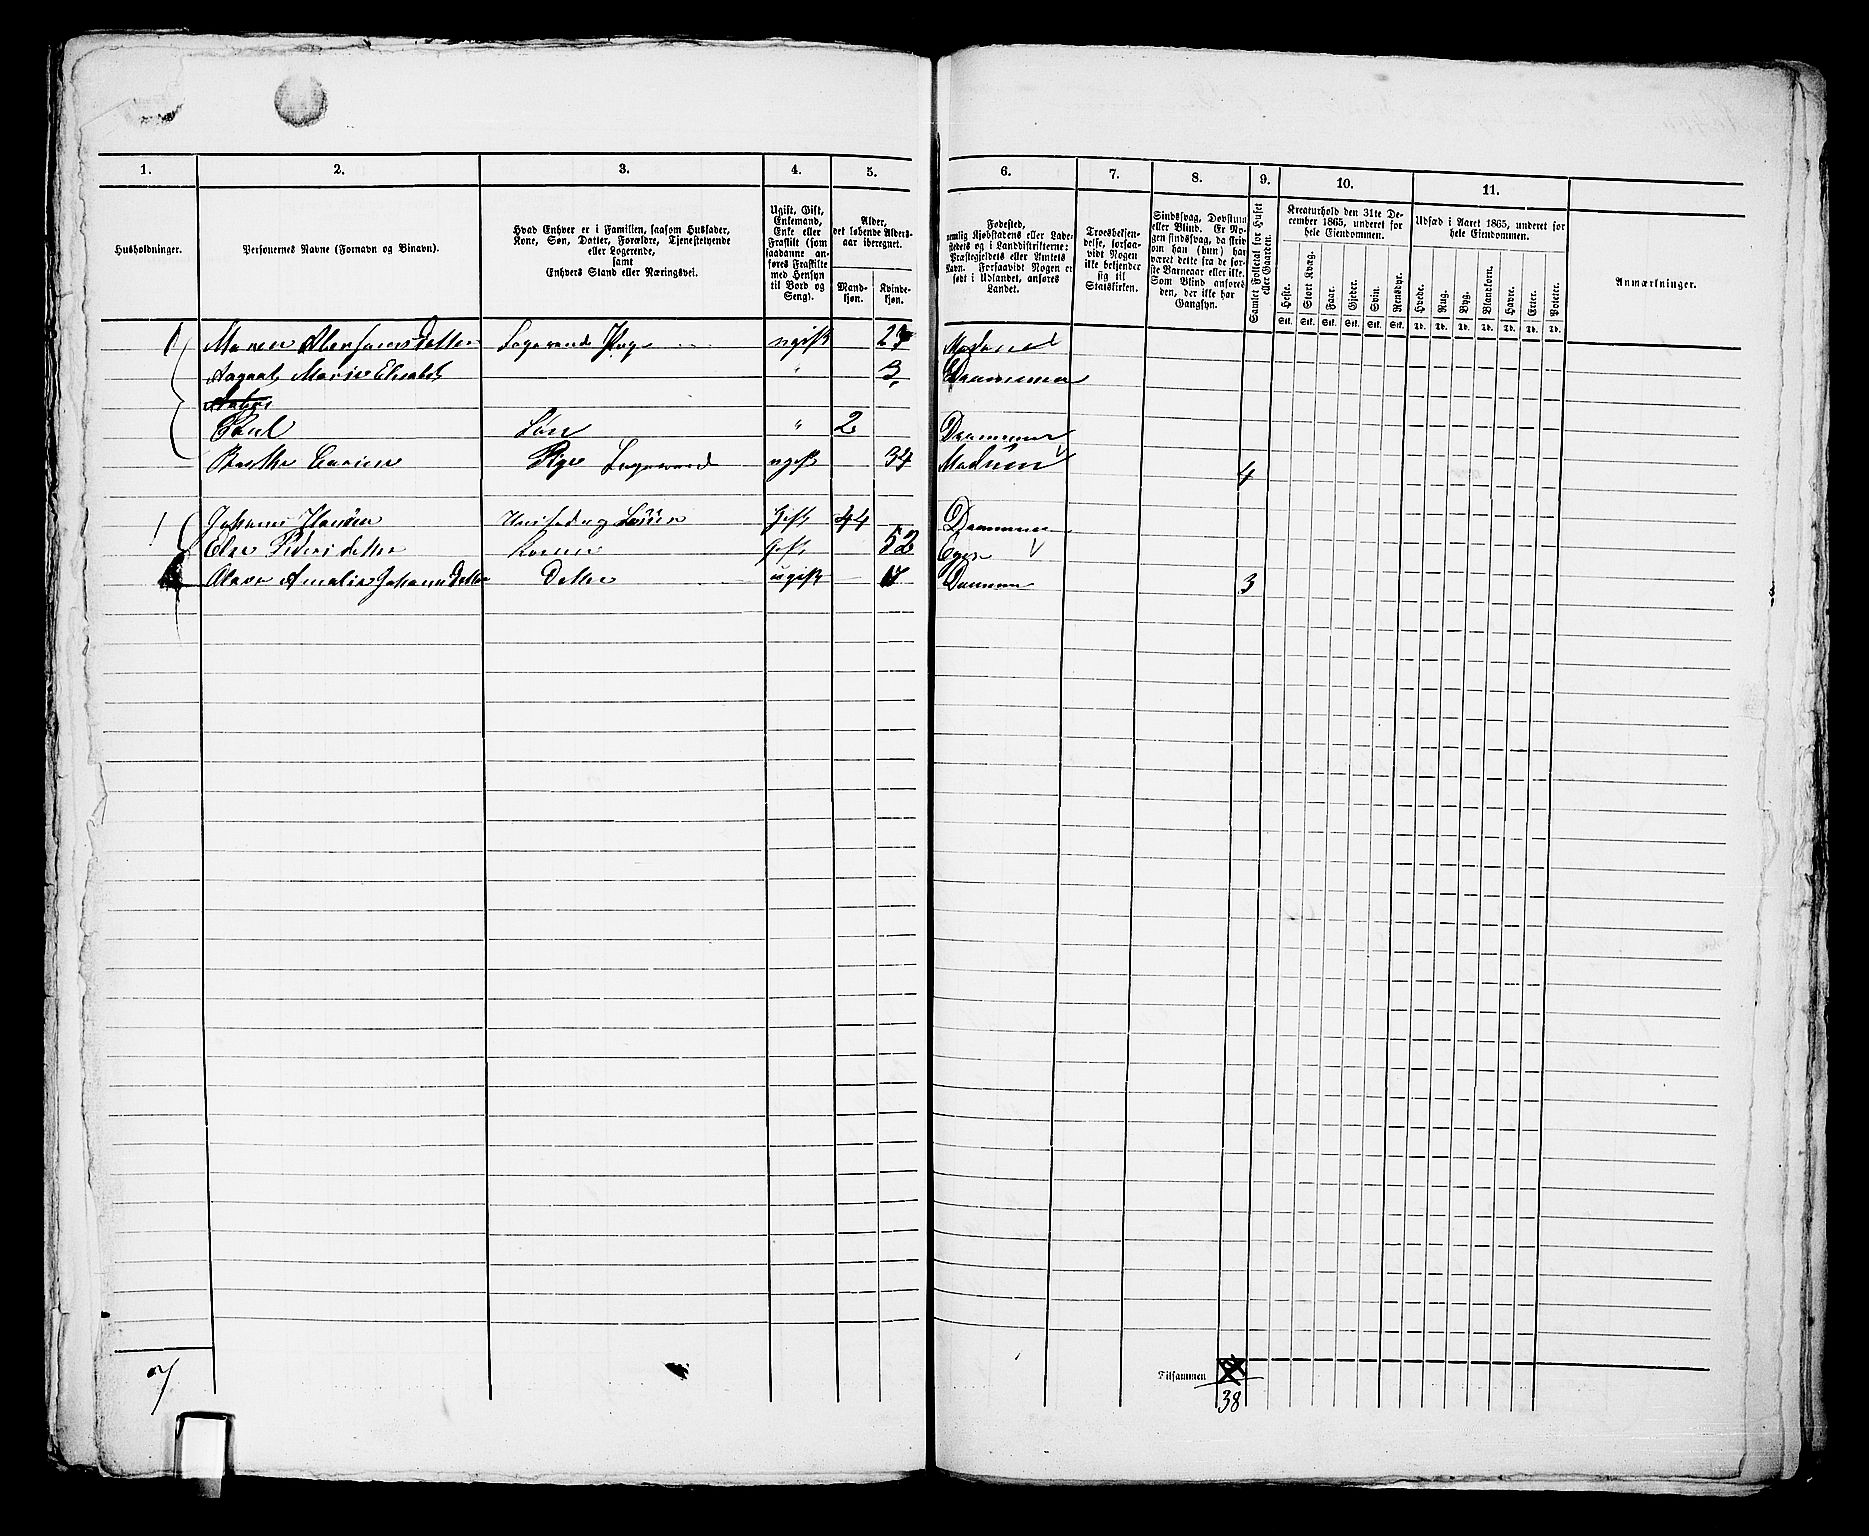 1. 2. 3. 4. 5. 6. 7. 8. 9. 10. 11.
Husholdninger.
Personernes Navne (Fornavn og Binavn).
Hvad Enhver er i Familien, saasom Husfader,
Kone, Søn, Datter, Forældre, Tjenestetyende
eller Logerende,
samt
Enhvers Stand eller Næringsvei.
Ugift, Gift,
Enkemand,
Enke eller
Fraskilt (som
saadanne an-
føres Fraskilte
med Hensyn
til Bord og
Seng).
Alder,
det løbende Alders-
aar iberegnet.
Mand-
kjøn.
Kvinde-
kjøn.
Fødested,
nemlig Kjøbstadens eller Lade-
stedets og i Landdistrikterne:
Præstegjeldets eller Amtets
Navn. Forsaavidt Nogen er
født i Udlandet, anføres
Landet.
Troesbekjen-
delse, forsaa-
vidt Nogen
ikke bekjender
sig til
Statskirken.
Sindssvag, Døvstum
eller Blind. Er No-
gen sindssvag, da skriv
om han (hun) har
været dette fra de før-
ste Barneaar eller ikke.
Som Blind anføres
den, der ikke har
Gangsyn.
Samlet Folketal for Huset
eller Gaarden.
Kreaturhold den 31te De-
cember 1865, underet for
hele Eiendommen.
Heste. Stort Kvæg. Faar. Gjeder. Svin. Rensdyr.
Stk. Stk. Stk. Stk. Stk. Stk.
Udsæd i Aaret 1865, underet for
hele Eiendommen.
Hvede. Rug. Byg. Blandkorn. Havre. Erter. Poteter.
Td. Td. Td. Td. Td. Td. Td.
Anmærkninger.
Maren ugift
Marie Elisabet " 3 Drammen
Søn " 2 Drammen
Berthe Pige ugift 34 Modum 4
Johannes Hansen Gift 44 Drammen
Else Gift 52 Eger
Amalie Datter ugift Drammen 3
7
Tilsammen
38